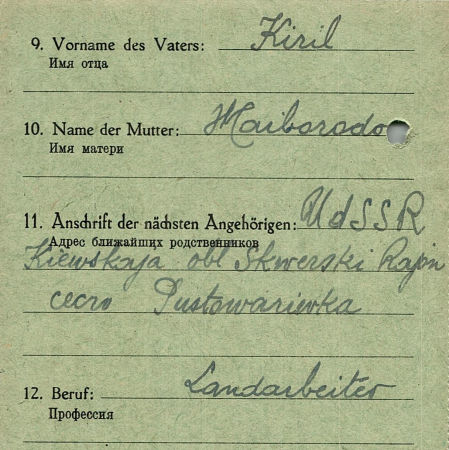 9. Vorname des Vaters: Kiril
Имя отца
10. Name der Mutter: Maiborodo
Имя матери
11. Anschrift der nächsten Angehörigen: UdSSR
Адрес ближайших родственников
Kiewskaja obl Skwerski Rajon
cecro Pustowariewka
12. Beruf: Landarbeiter
Профессия